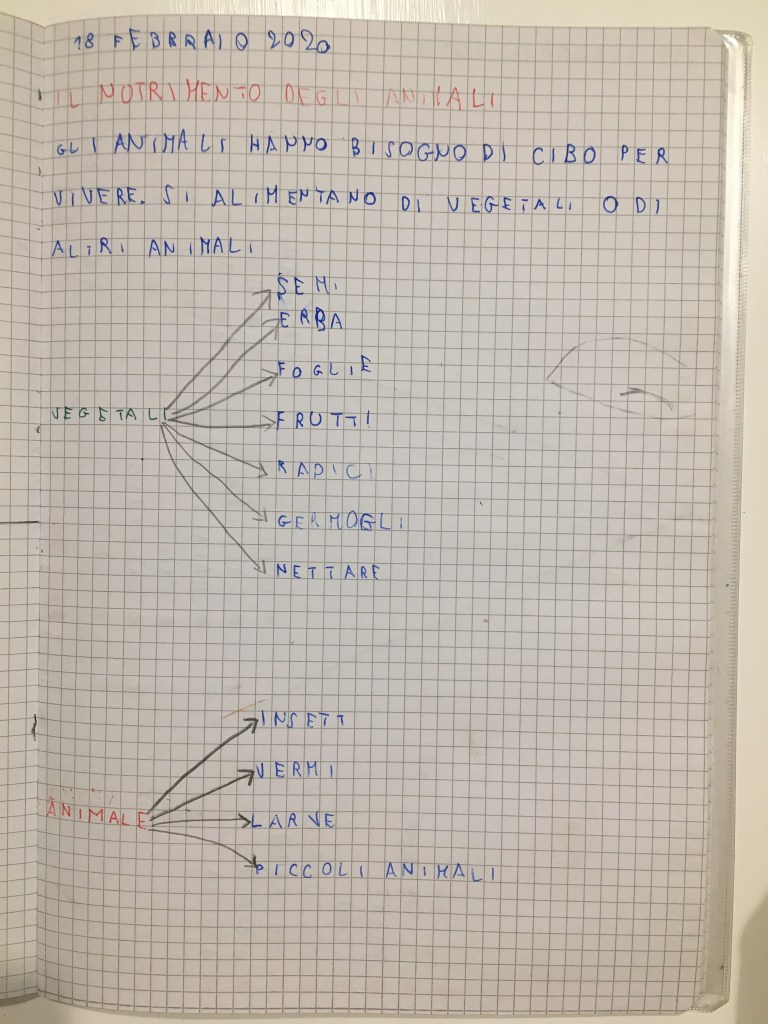 18 FEBBRAIO 2020
IL NUTRIMENTO DEGLI ANIMALI
GLI ANIMALI HANNO BISOGNO DI CIBO PER
VIVERE. SI ALIMENTANO DI VEGETALI O DI
ALTRI ANIMALI
SEMI
ERBA
FOGLIE
VEGETALI
FRUTTI
RADICI
GERMOGLI
NETTARE
INSETT
VERMI
ANIMALE
LARVE
PICCOLI ANIMALI